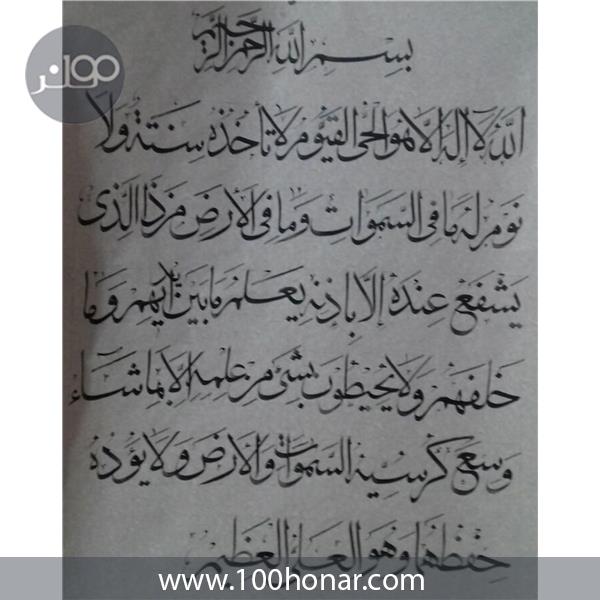 صد هنر
بسم الله الرحمن الرحیم
الله لا إله إلا هو الحی القیوم لا تأخذه سنة ولا
نوم له ما فی السموات وما فی الأرض من ذا الذی
یشفع عنده إلا بإذنه یعلم ما بین أیدیهم وما
خلفهم ولا یحیطون بشیء من علمه إلا بما شاء
وسع کرسیه السموات والأرض ولا یؤده
حفظهما وهو العلی العظیم
www.100honar.com